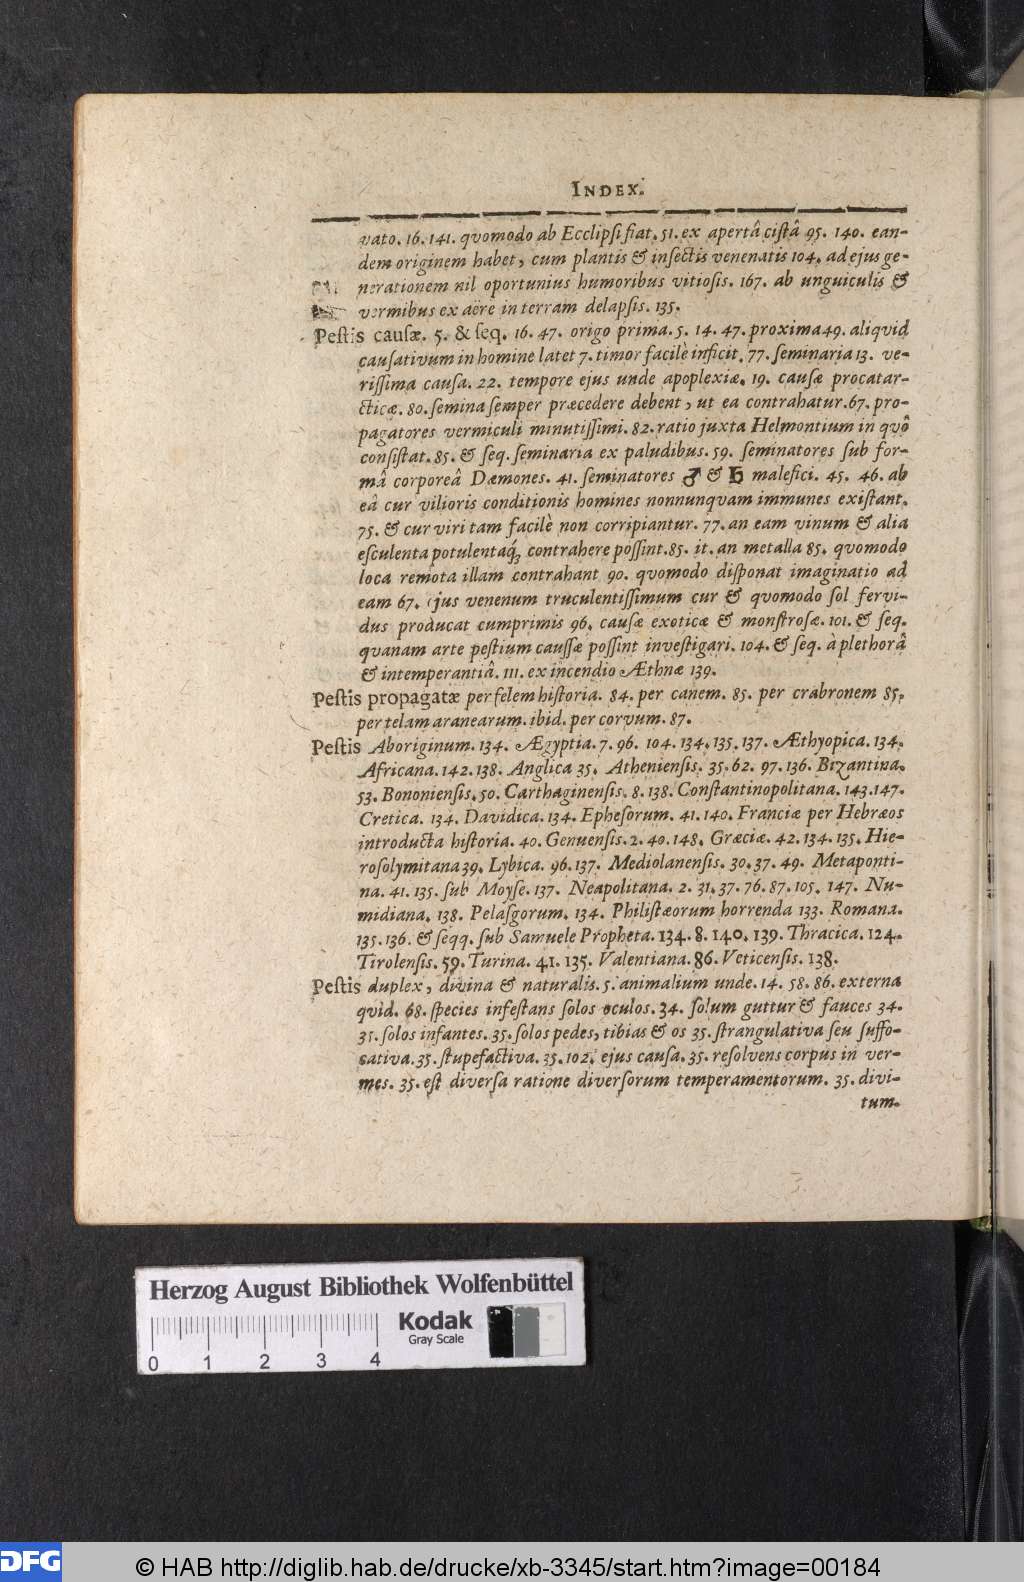 INDEX.
vato. 16. 141. qvomodo ab Ecclipsi fiat. 51. ex apertâ cistâ 95. 140. ean-
dem originem habet, cum plantis & insectis venenatis 104. ad ejus ge-
nerationem nil oportunius humoribus vitiosis. 167. ab unguiculis &
vermibus ex aëre in terram delapsis. 135.
Pestis causæ. 5. & seq. 16. 47. origo prima. 5. 14. 47. proxima 49. aliqvid
causativum in homine latet 7. timor facilè inficit. 77. seminaria 13. ve-
rissima causa. 22. tempore ejus unde apoplexiæ. 19. causæ procatar-
cticæ. 80. semina semper præcedere debent, ut ea contrahatur. 67. pro-
pagatores vermiculi minutissimi. 82. ratio juxta Helmontium in qvô
consistat. 85. & seq. seminaria ex paludibus. 59. seminatores sub for-
mâ corporeâ Dæmones. 41. seminatores ♂ & ♄ malefici. 45. 46. ab
eâ cur vilioris conditionis homines nonnunqvam immunes existant.
75. & cur viri tam facilè non corripiantur. 77. an eam vinum & alia
esculenta potulentaq́; contrahere possint. 85. it. an metalla 85. qvomodo
loca remota illam contrahant 90. qvomodo disponat imaginatio ad
eam 67. ejus venenum truculentissimum cur & qvomodo sol fervi-
dus producat cumprimis 96. causæ exoticæ & monstrosæ. 101. & seq.
qvanam arte pestium caussæ possint investigari. 104. & seq. à plethorâ
& intemperantiâ. 111. ex incendio Æthnæ 139.
Pestis propagatæ per felem historia. 84. per canem. 85. per crabronem 85.
per telam aranearum. ibid. per corvum. 87.
Pestis Aboriginum. 134. Ægyptia. 7. 96. 104. 134. 135. 137. Æthyopica. 134.
Africana. 142. 138. Anglica 35. Atheniensis. 35. 62. 97. 136. Bizantina.
53. Bononiensis. 50. Carthaginensis. 8. 138. Constantinopolitana. 143. 147.
Cretica. 134. Davidica. 134. Ephesorum. 41. 140. Franciæ per Hebræos
introducta historia. 40. Genuensis. 2. 40. 148. Græciæ. 42. 134. 135. Hie-
rosolymitana 39. Lybica. 96. 137. Mediolanensis. 30. 37. 49. Metaponti-
na. 41. 135. sub Moyse. 137. Neapolitana. 2. 31. 37. 76. 87. 105. 147. Nu-
midiana. 138. Pelasgorum. 134. Philistæorum horrenda 133. Romana.
135. 136. & seqq. sub Samuele Propheta. 134. 8. 140. 139. Thracica. 124.
Tirolensis. 59. Turina. 41. 135. Valentiana. 86. Veticensis. 138.
Pestis duplex, divina & naturalis. 5. animalium unde. 14. 58. 86. externa
qvid. 68. species infestans solos oculos. 34. solum guttur & fauces 34.
31. solos infantes. 35. solos pedes, tibias & os 35. strangulativa seu suffo-
cativa. 35. stupefactiva. 35. 102. ejus causa. 35. resolvens corpus in ver-
mes. 35. est diversa ratione diversorum temperamentorum. 35. divi-
tum.
Herzog August Bibliothek Wolfenbüttel
Kodak
Gray Scale
0 1 2 3 4
DFG © HAB http://diglib.hab.de/drucke/xb-3345/start.htm?image=00184